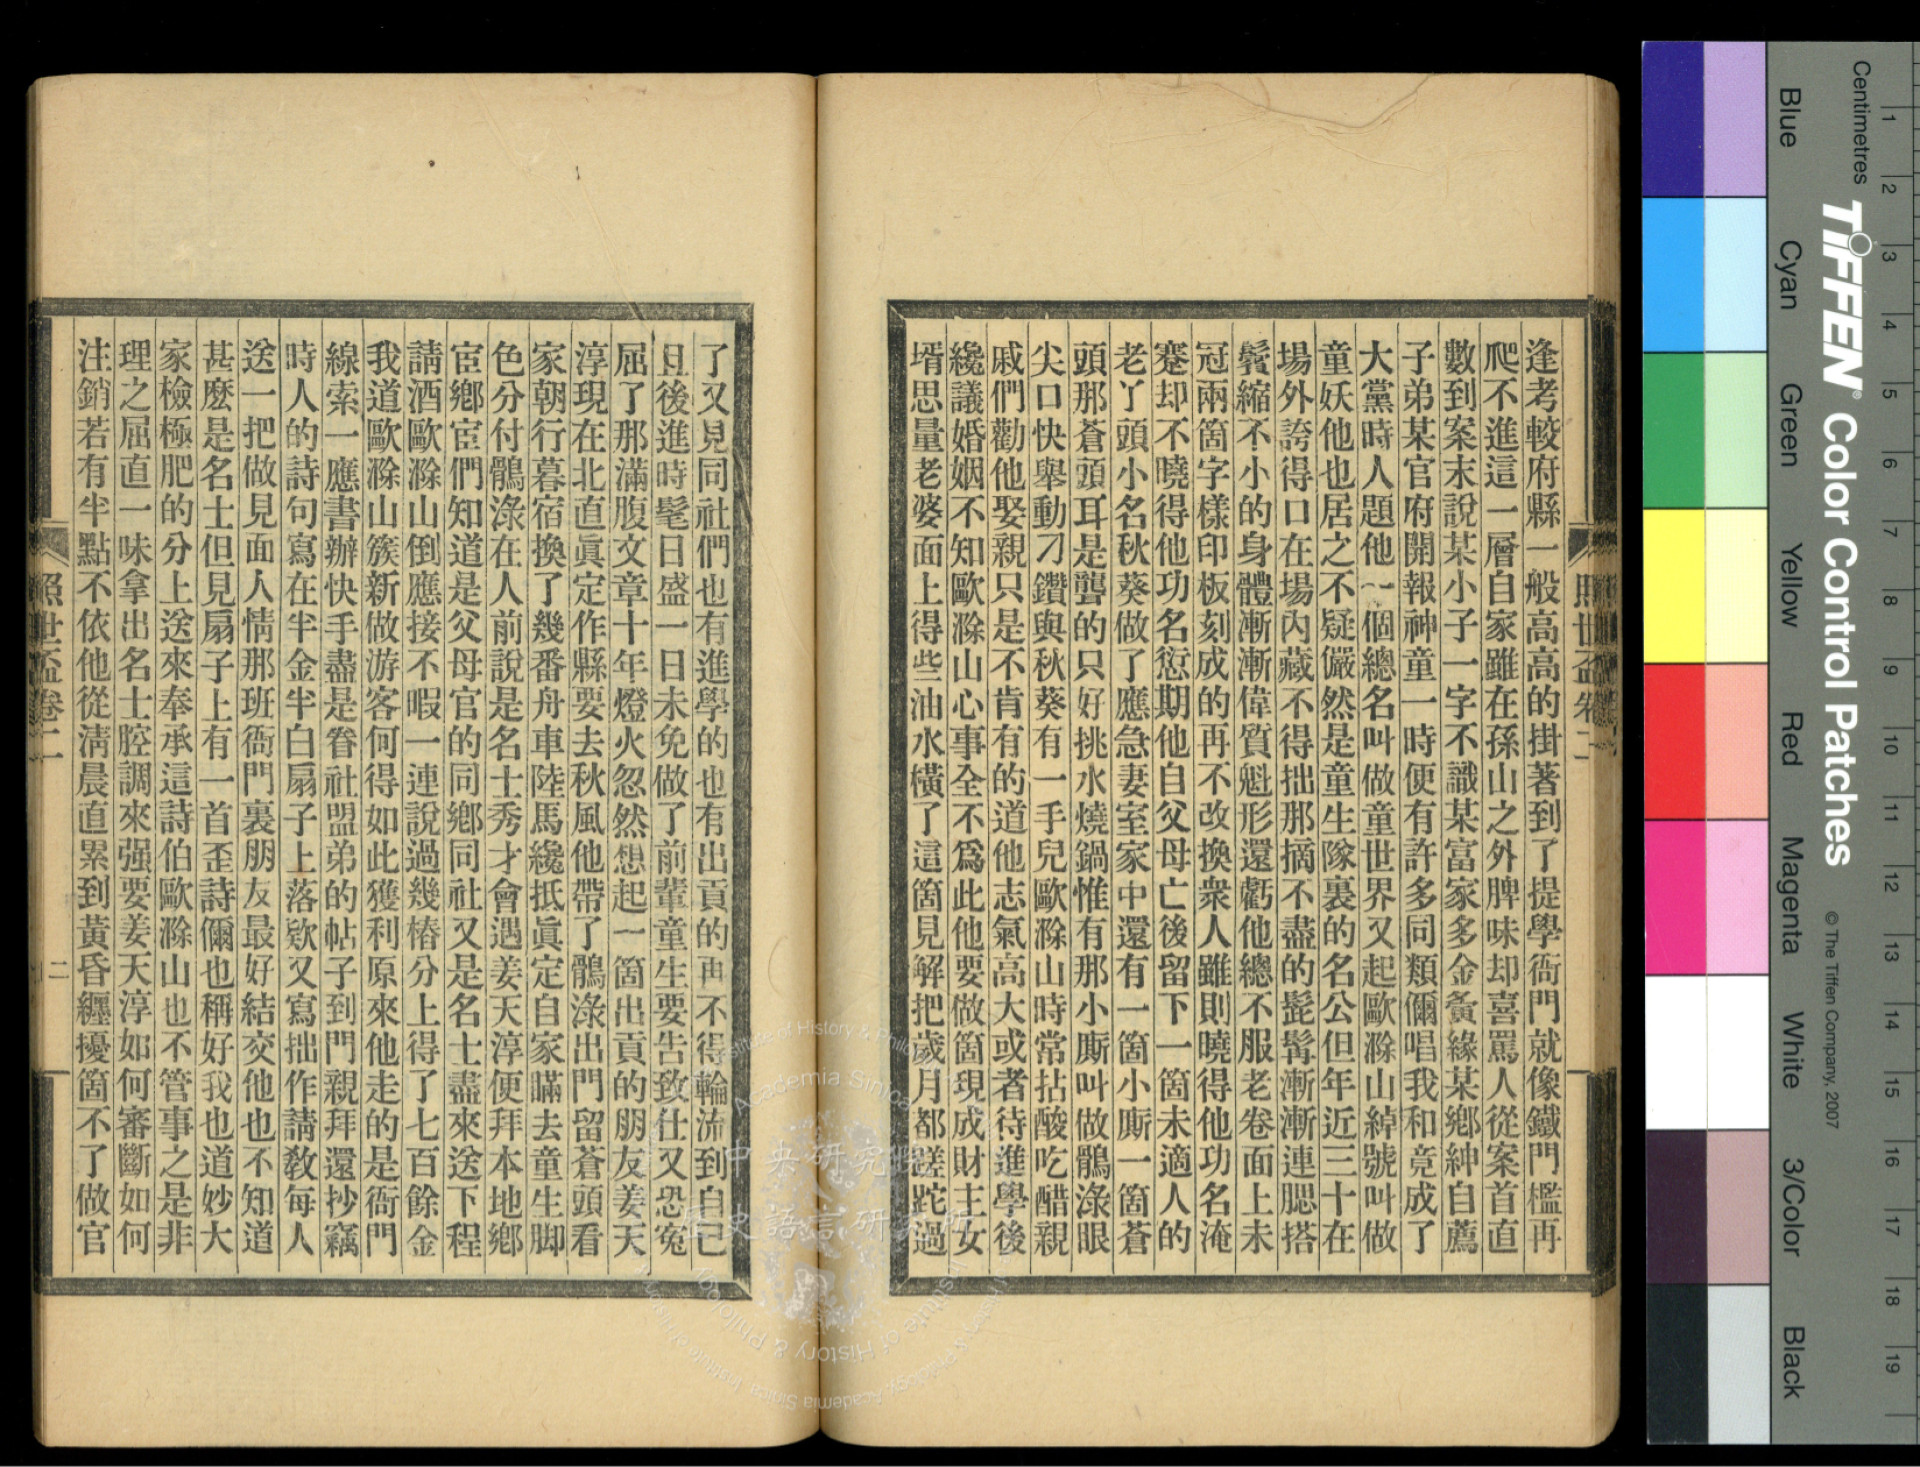 逢考較府縣一般高高的掛著到了提學衙門就像鐵門檻再
爬不進這一層自家雖在孫山之外脾味却喜罵人從案首直
數到案末說某小子一字不識某富家多金夤緣某鄉紳自薦
子弟某官府開報神童一時便有許多同類儞唱我和竟成了
大黨時人題他一個總名叫做童世界又起歐滁山綽號叫做
童妖他也居之不疑儼然是童生隊裏的名公但年近三十在
場外誇得口在場內藏不得拙那摘不盡的髭髯漸漸連腮搭
鬢縮不小的身體漸漸偉質魁形還虧他總不服老卷面上未
冠兩箇字樣印板刻成的再不改換衆人雖則曉得他功名淹
蹇却不曉得他功名愆期他自父母亡後留下一箇未適人的
老丫頭小名秋葵做了應急妻室家中還有一箇小廝一箇蒼
頭那蒼頭耳是聾的只好挑水燒鍋惟有那小廝叫做鶻淥眼
尖口快舉動刁鑽與秋葵有一手兒歐滁山時常拈酸吃醋親
戚們勸他娶親只是不肯有的道他志氣高大或者待進學後
纔議婚姻不知歐滁山心事全不爲此他要做箇現成財主女
壻思量老婆面上得些油水橫了這箇見解把歲月都蹉跎過
照世盃卷二
了又見同社們也有進學的也有出貢的再不得輪流到自己
且後進時髦日盛一日未免做了前輩童生要告致仕又恐寃
屈了那滿腹文章十年燈火忽然想起一箇出貢的朋友姜天
淳現在北直眞定作縣要去秋風他帶了鶻淥出門留蒼頭看
家朝行暮宿換了幾番舟車陸馬纔抵眞定自家瞞去童生脚
色分付鶻淥在人前說是名士秀才會遇姜天淳便拜本地鄕
宦鄕宦們知道是父母官的同鄕同社又是名士盡來送下程
請酒歐滁山倒應接不暇一連說過幾樁分上得了七百餘金
我道歐滁山簇新做游客何得如此獲利原來他走的是衙門
線索一應書辦快手盡是眷社盟弟的帖子到門親拜還抄竊
時人的詩句寫在半金半白扇子上落欵又寫拙作請敎每人
送一把做見面人情那班衙門裏朋友最好結交他也不知道
甚麽是名士但見扇子上有一首歪詩儞也稱好我也道妙大
家檢極肥的分上送來奉承這詩伯歐滁山也不管事之是非
理之屈直一味拿出名士腔調來强要姜天淳如何審斷如何
注銷若有半點不依他從淸晨直累到黃昏纏擾箇不了做官
照世盃卷二
二
Centimetres
TIFFEN® Color Control Patches
© The Tiffen Company, 2007
Blue
Cyan
Green
Yellow
Red
Magenta
White
3/Color
Black
1
2
3
4
5
6
7
8
9
10
11
12
13
14
15
16
17
18
19
中央研究院
歷史語言研究所